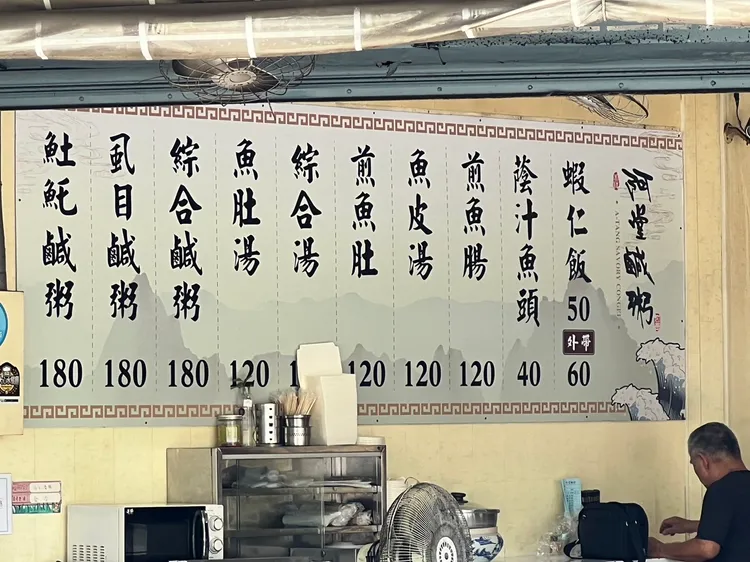 阿堂鹹粥
A-TANG SAVORY CONGEE
蝦仁飯 50
外帶 60
蔭汁魚頭 40
煎魚腸 120
魚皮湯 120
煎魚肚 120
綜合湯
魚肚湯 120
綜合鹹粥 180
虱目鹹粥 180
𩵚魠鹹粥 180